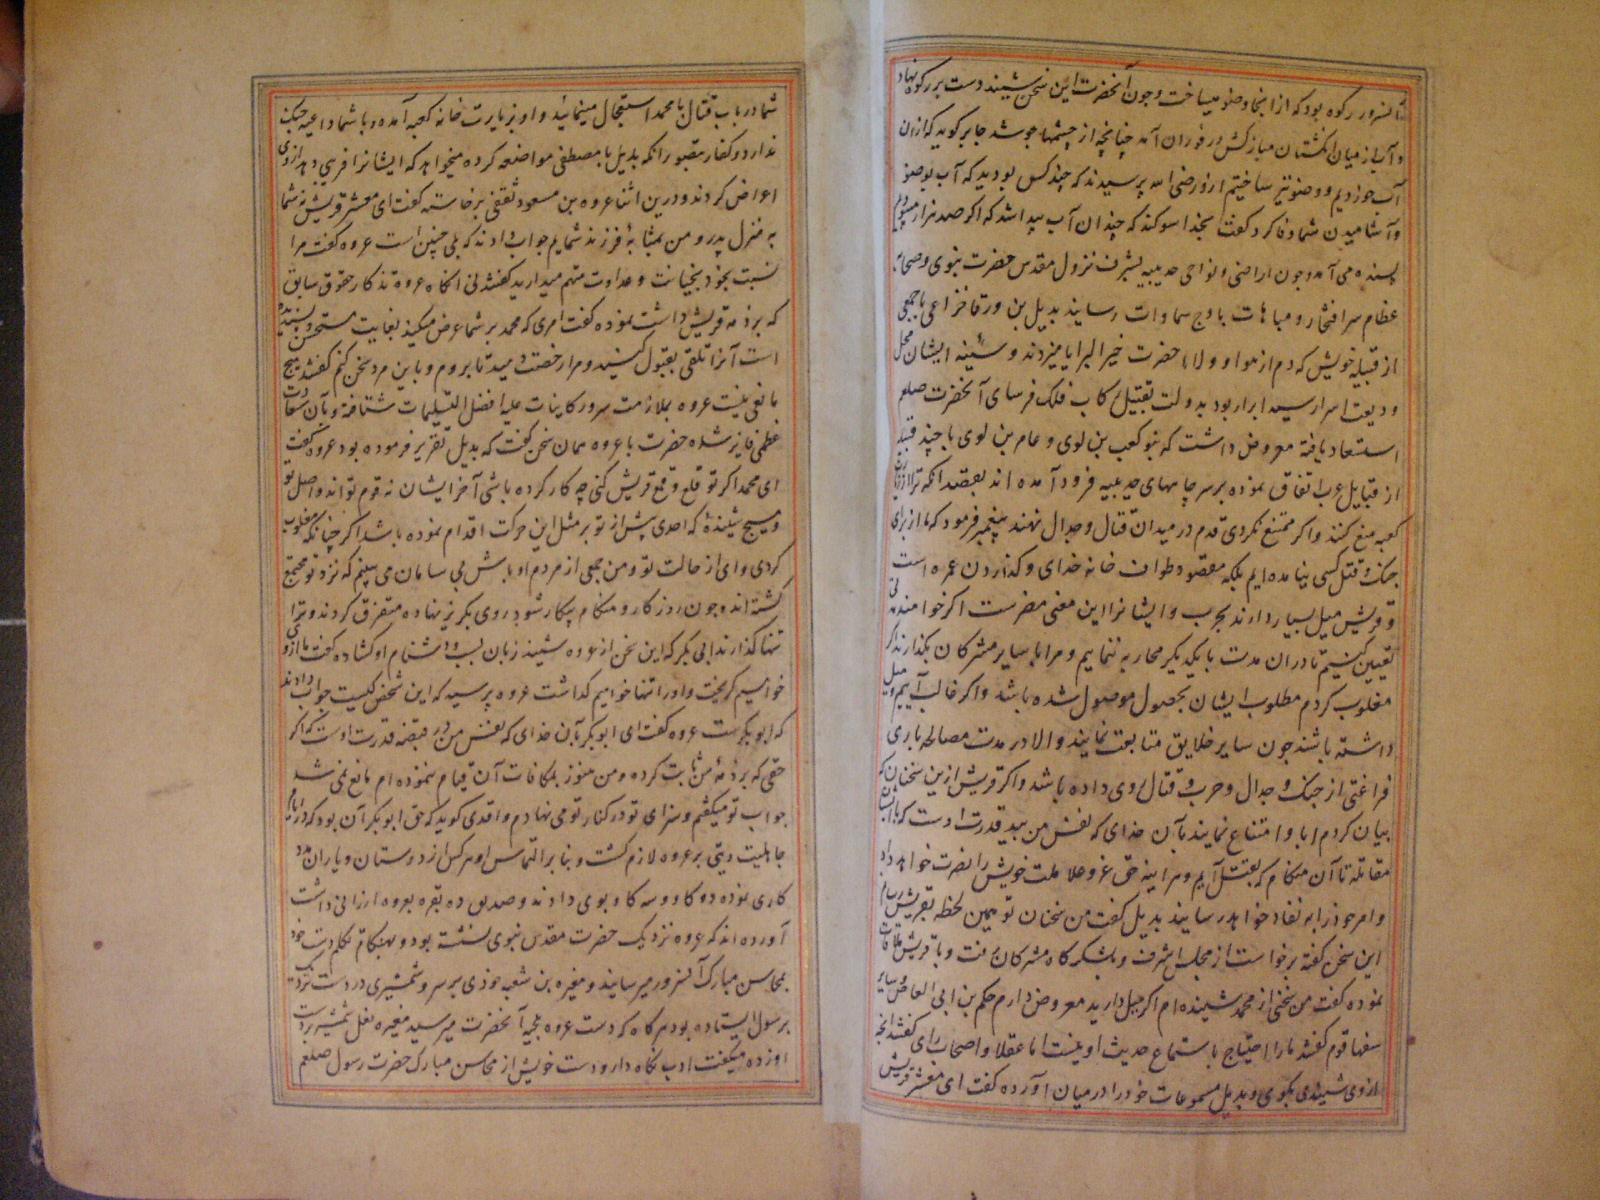 آنسرور رکوه بود که از انجا وضو میساخت و چون آنحضرت این سخن شنید دست بر رکوه نهاد
و آب از میان انگشتان مبارکش در فوران آمد چنانچه از چشمها جوشد جابر گوید که ازان
آب خوردیم و وضو نیز ساختیم از وی رضی الله پرسیدند که چند کس بودید که آب بوضو
و آشامیدن شما وفا کرد گفت بخدا سوگند که چندان آب پیدا شد که اگر صد هزار میبودیم
بسنده می آمد و چون اراضی و نواحی حدیبیه بشرف نزول مقدس حضرت نبوی و صحابه
عظام سر افتخار و مباهات باوج سماوات رسانید بدیل بن ورقا خزاعی با جمعی
از قبیله خویش که دم از هوا و ولاء حضرت خیر البرایا میزدند و سینه ایشان محل
ودیعت اسرار سید ابرار بود بدولت تقبیل رکاب فلک فرسای آنحضرت صلعم
استسعاد یافته معروض داشت که بنو کعب بن لوی و عامر بن لوی با چند قبیله
از قبایل عرب اتفاق نموده بر سر چاههای حدیبیه فرود آمده اند بقصد آنکه ترا از زیارت
کعبه منع کنند و اگر ممتنع نگردی قدم در میدان قتال و جدال نهند پیغمبر فرمود که ما از برای
جنک و قتل کسی نیامده ایم بلکه مقصود طواف خانه خدای و گذاردن عمره است
و قریش میل بسیار دارند بحرب و ایشانرا این معنی مضرست اگر خواهند مدتی
تعیین کنیم تا دران مدت با یکدیگر محاربه ننماییم و مرا با سایر مشرکان بگذارند اگر
مغلوب کردم مطلوب ایشان بحصول موصول شده باشد و اگر غالب آییم و میل
داشته باشند چون سایر خلایق متابعت نمایند و الا در مدت مصالحه باری
فراغتی از جنک و جدال و حرب و قتال روی داده باشد و اگر قریش ازین سخنان که
بیان کردم ابا و امتناع نمایند بآن خدای که نفس من بید قدرت اوست که با ایشان
مقاتله تا آن هنکام که بقتل آیم و هر آینه حق عز و علا ملت خویش را نصرت خواهد داد
و امر خود را به نفاد خواهد رسانید بدیل گفت من سخنان تو همین لحظه بقریش رسانم
این سخن گفته برخواست از مجلس اشرف و بلشکرگاه مشرکان رفت و با قریش ملاقات
نموده گفت من سخنی از محمد شنیده ام اگر میل دارید معروض دارم حکم بن ابی العاص و سایر
سفها قوم گفتند ما را احتیاج باستماع حدیث او نیست اما عقلا و اصحاب رای گفتند آنچه
از وی شنیدی بکوی و بدیل مسموعات خود را در میان آورده گفت ای معشر قریش
شما در باب قتال با محمد استعجال مینمائید و او بزیارت خانه کعبه آمده و با شما داعیه جنک
ندارد و کفار بتصور آنکه بدیل با مصطفی مواضعه کرده میخواهد که ایشانرا فریبی دهد از وی
اعراض کردند و درین اثنا عروه بن مسعود ثقفی برخاسته گفت ای معشر قریش نه شما
به منزل پدر و من بمثابهٔ فرزند شمایم جواب دادند که بلی چنین است عروه گفت مرا
نسبت بخود بخیانت و عداوت متهم میدارید گفتند نی آنگاه عروه تذکار حقوق سابق
که بر ذمه قریش داشت نموده گفت امری که محمد بر شما عرض میکند بغایت مستحسن و پسندیده
است آنرا تلقی بقبول کنید و مرا رخصت دهید تا بروم و با این مرد سخن کنم گفتند هیچ
مانعی نیست عروه بملازمت سرور کاینات علیه افضل التسلیمات شتافته و بآن سعادت
عظمی فایز شده حضرت با عروه همان سخن گفت که بدیل تقریر فرموده بود عروه گفت
ای محمد اگر تو قلع و قمع قریش کنی چه کار کرده باشی آخر ایشان نه قوم تواند و اصل تو
و هیچ شنیدهٔ که احدی پیش از تو بر مثل این حرکت اقدام نموده باشد اگر چنانکه مغلوب
کردی وای از حالت تو و من جمعی از مردم اوباش بی سامان می بینم که نزد تو مجتمع
گشته اند و چون روز کار و هنکام پیکار شود روی بگریز نهاده متفرق کردند و ترا
تنها گذارند ابی بکر که این سخن از عروه شنید زبان بسب و دشنام او گشاده گفت ما از وی
خواهیم گریخت و او را تنها خواهیم گذاشت عروه پرسید که این شخص کیست جواب دادند
که ابو بکرست عروه گفت ای ابو بکر بآن خدای که نفس من در قبضه قدرت اوست که اگر
حقی که بر ذمهٔ من ثابت کرده و من هنوز بمکافات آن قیام ننموده ام مانع نمی شد
جواب تو میکفتم و سزای تو در کنار تو می نهادم واقدی گوید که حق ابو بکر آن بود که در ایام
جاهلیت دیتی بر عروه لازم گشت و بنا بر التماس او هر کس از دوستان و یاران مدد
کاری نموده دو گاو و سه گاو بوی دادند و صدیق ده بقره بعروه ارزانی داشت
آورده اند که عروه نزدیک حضرت مقدس نبوی نشسته بود و بهنکام تکلم دست خود
بمحاسن مبارک آنسرور میرسانید و مغیره بن شعبه خودی بر سر و شمشیری در دست نزدیک
برسول ایستاده بود هر گاه که دست عروه بلحیه آنحضرت میرسید مغیره نعل شمشیر بر دست
او زده میگفت ادب نگاه دار و دست خویش از محاسن مبارک حضرت رسول صلعم